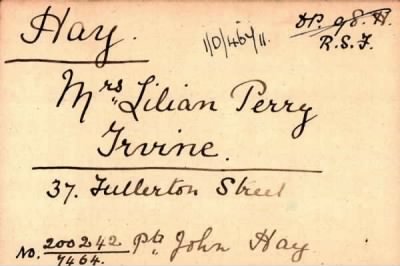 Hay. 1/D/467/11. D.P. 98. H.
R.S.F.
Mrs Lilian Perry
Irvine.
37. Fullerton Street
No. 200242 Pte John Hay
7464.